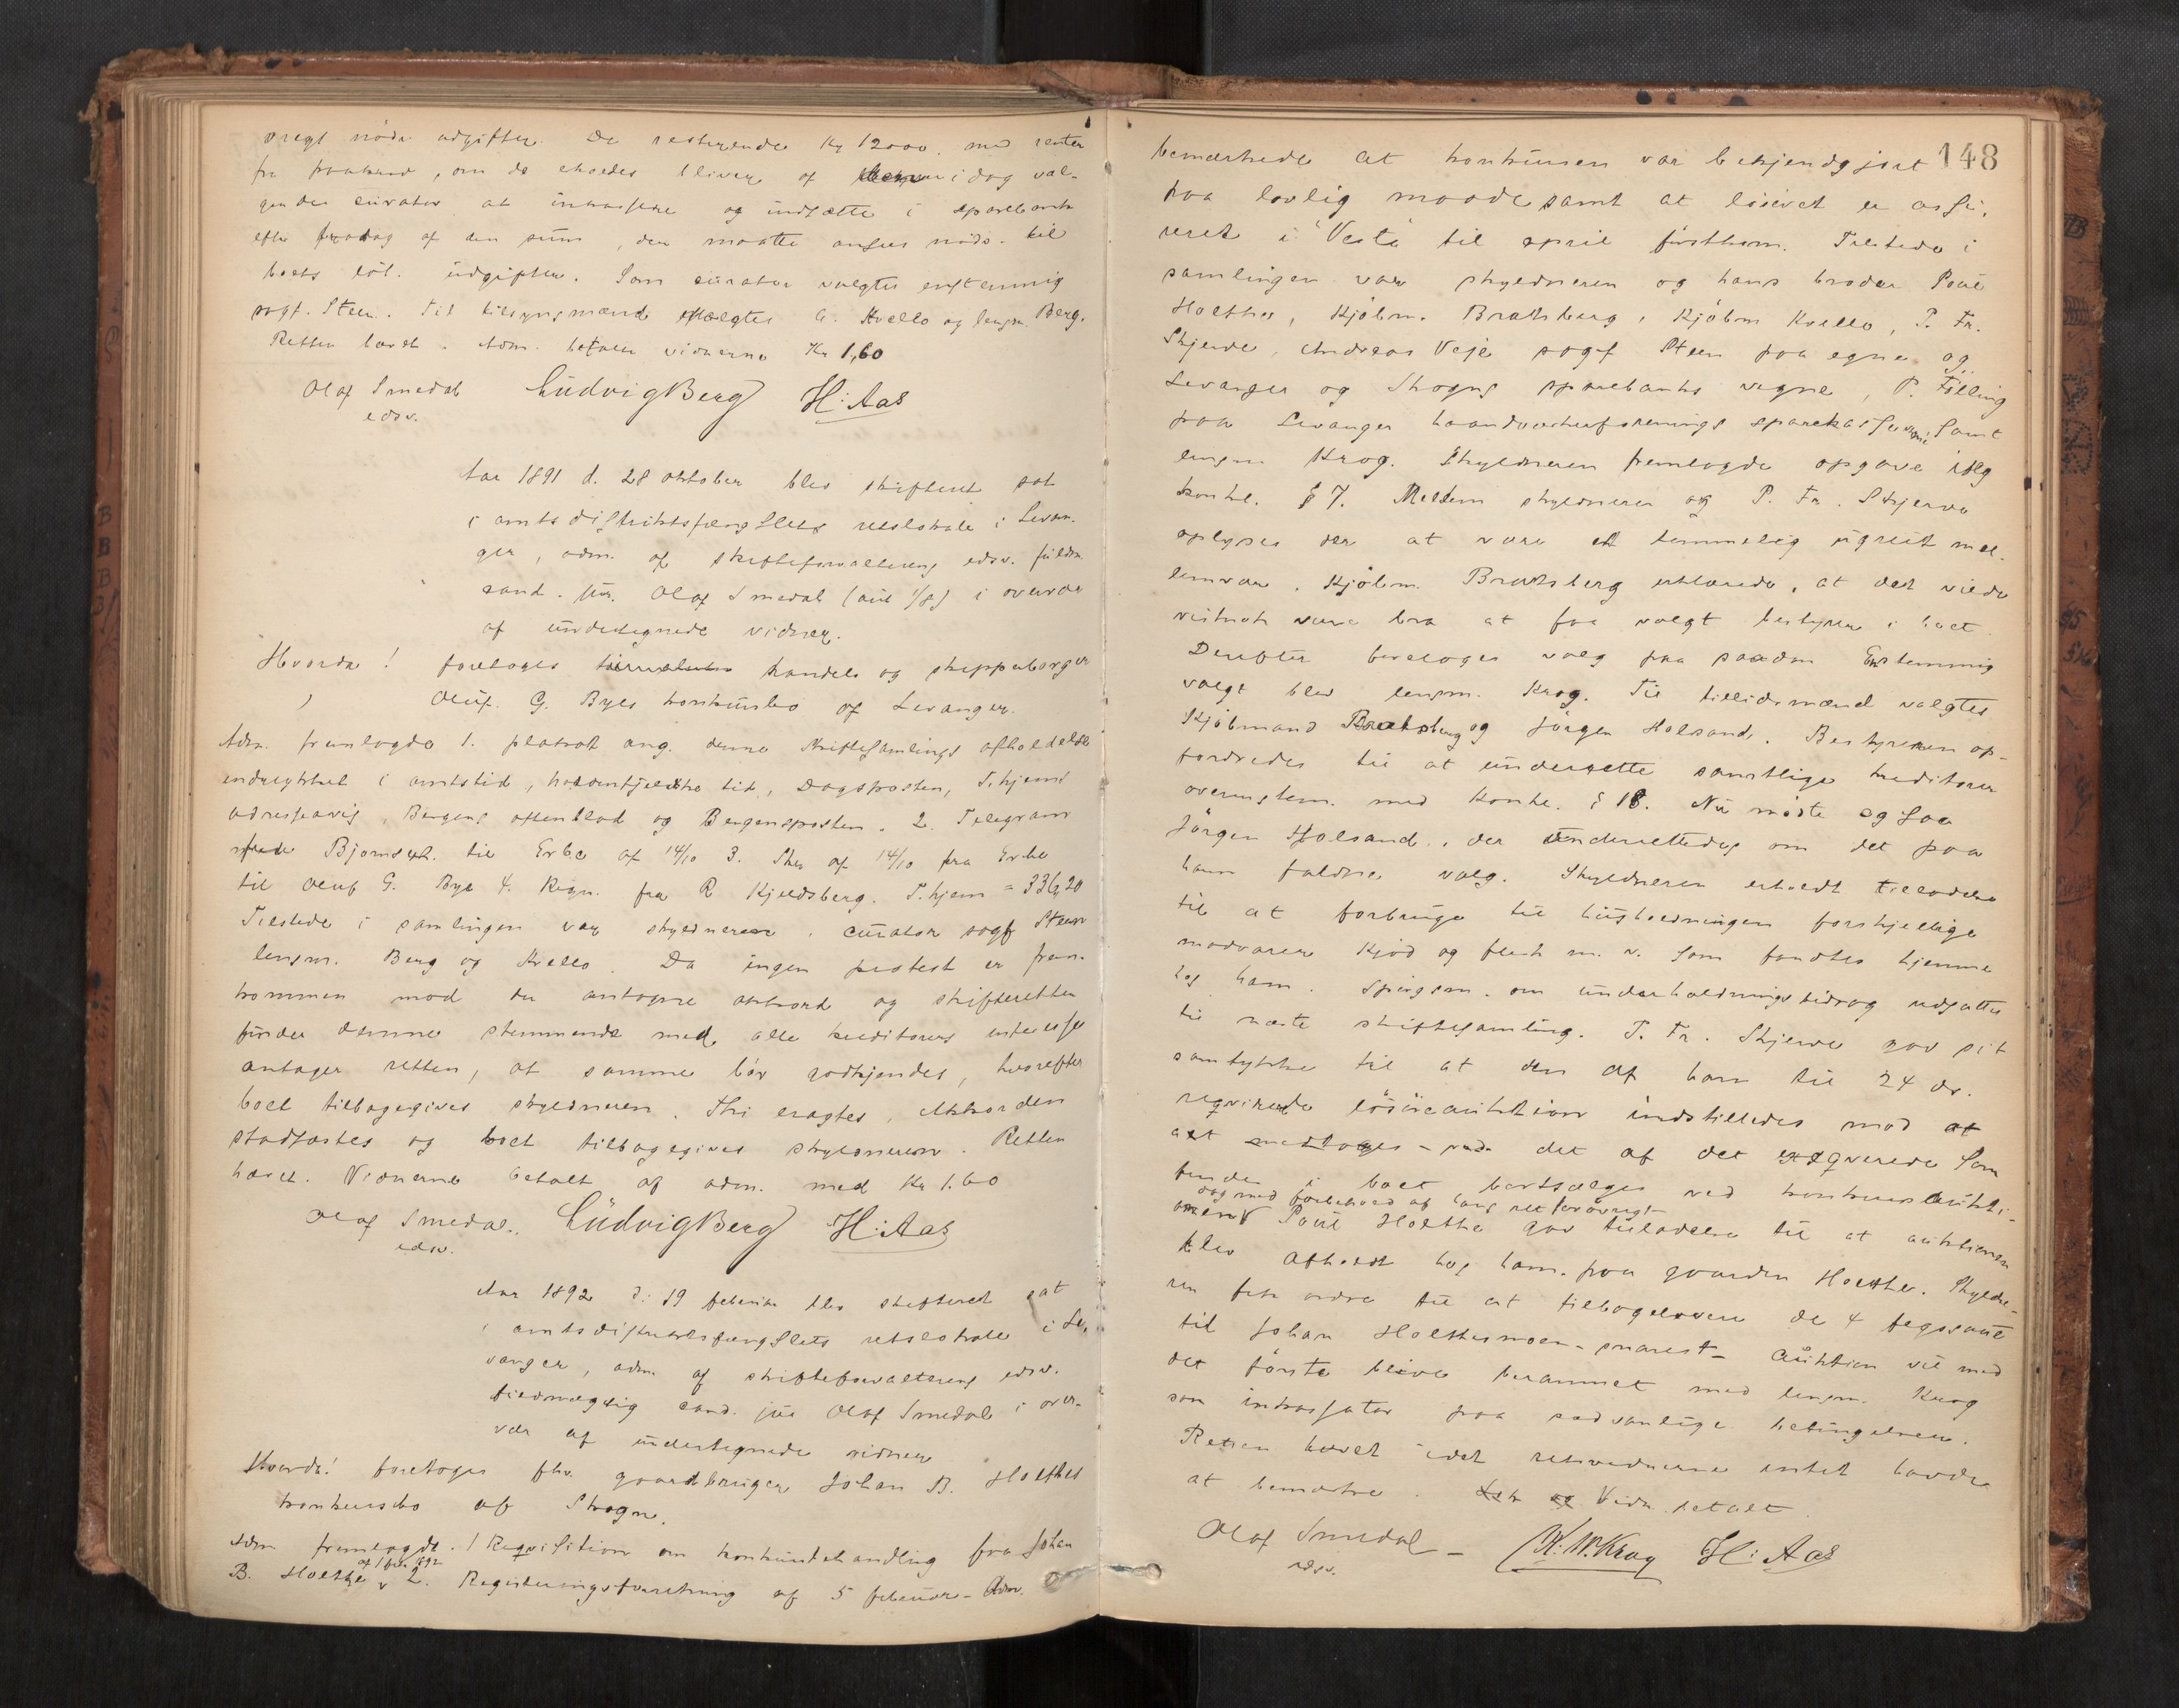 øvrigt nødv. udgifter. De resterende Kr 12000. med renter
fra paakrav, om de ehoedes bliver af i dag val-
gendes curator at inkassere og indsætte i sparebank
efter fradrag af den sum, der maatte ansees nødv. til
boets løb. udgifter. Som curator valgtes enstemmig
sogf. Steen. Til tilsynsmænd valgtes G. Kvello og lensm. Berg.
Retten hævet. Adm. betaler vidnerne Kr 1,60
Olaf Smedal Ludvig Berg H: Aas
edsv.
Aar 1891 d. 28 oktober blev skifteret sat
i amtsdistriktsfængslets retslokale i Levan-
ger, adm. af skifteforvalterens edsv. fuldm.
cand. jur. Olaf Smedal (aut 1/8) i overvær
af undertegnede vidner.
Hvorda! foretoges handels og skipperborger
Oluf. G. Byes konkursbo af Levanger.
Adm. fremlagde 1. plakat ang. denne skiftesamlings afholdelse
indrykket i amtstid, nordenfjeldske tid, Dagsposten, T.hjems
adresseavis, Bergens aftenblad og Bergensposten. 2. Telegram
fra Bjørnseth. til Erbe af 14/10 3. Skr af 14/10 fra Erbe
til Oluf G. Bye 4. Regn. fra R Kjeldsberg. T.hjem = 336,20
Tilstede i samlingen var skyldneren, curator sogf Steen
lensm. Berg og Kvello. Da ingen protest er frem-
kommen mod den antagne akkord og skifteretten
finder denne stemmende med alle kreditorers interesse
antager retten, at samme bør godkjendes, hvorefter
boet tilbagegives skyldneren. Thi eragtes, Akkorden
stadfæstes og boet tilbagegives skyldneren. Retten
hævet. Vidnerne betalt af adm. med Kr 1.60
Olaf Smedal. Ludvig Berg H: Aas
edsv.
Aar 1892 d: 19 februar blev skifteret sat
i amtsdistriktsfængslets retslokale i Le-
vanger, adm. af skifteforvalterens edsv.
fuldmægtig cand. jur Olaf Smedal i over-
vær af undertegnede vidner
Hvorda! foretoges fhv. gaardbruger Johan B. Holthes
konkursbo af Skogn.
Adm fremlagde. 1 Reqvisition om konkursbehandling fra Johan
af 1 febr 1892
B. Holthe 2. Registreringsforretning af 5 februar - Adm.
148
bemærkede at konkursen var bekjendgjort
paa lovlig maade samt at løsøret er assu-
reret i "Vesta" til april førstkom. Tilstede i
samlingen var skyldneren og hans broder Paul
Holthe, Kjøbm. Bratsberg, Kjøbm Kvello, P. Fr.
Skjerve, Andreas Veje sogf Steen paa egne og
Levanger og Skogns sparebanks vegne, P. Filling
paa Levanger haandværkerforenings sparekasses vegne samt
lensm Krog. Skyldneren fremlagde opgave iflg
konkl. § 7. Mellem skyldneren og P. Fr. Skjerve
oplyses der at være et temmelig ugreit mel-
lemvær. Kjøbm. Bratsberg erklærede, at det vilde
vistnok være bra at faa valgt bestyrer i boet
Derefter foretoges valg paa saadan Enstemmig
valgt blev lensm. Krog. Til tillidsmænd valgtes
Kjøbmand Bratsberg og Jørgen Holsand. Bestyreren op-
fordredes til at underrette samtlige kreditorer
overenstem. med Konkl. § 18. Nu mødte ogsaa
Jørgen Holsand, der underrettedes om det paa
ham faldne valg. Skyldneren erholdt tilladelse
til at forbruge til husholdningen forskjellige
madvarer kjød og flesk m. v. som fandtes hjemme
hos ham. Spørgsm. om underholdningsbidrag udsattes
til næste skiftesamling. P. Fr. Skjerve gav sit
samtykke til at den af ham til 24 ds.
reqvirerede løsøreauktion indstilledes mod at
alt det af det exeqverede som
findes i boet bortsælges ved konkursaukti-
dog med forbehold af hans ret forøvrigt
onen Paul Holthe gav tilladelse til at auktionen
blev afholdt hos ham paa gaarden Holthe. Skyldne-
ren fik ordre til at tilbagelevere de 4
til Johan Holthesmoen - snarest - Auktion vil med
det første blive berammet med lensm. Krog
som inkassator paa sædvanlige betingelser.
Retten hævet idet retsvidnerne intet havde
at bemærke. Vidn. betalt.
Olaf Smedal - K. M. Krog H: Aas
edsv.